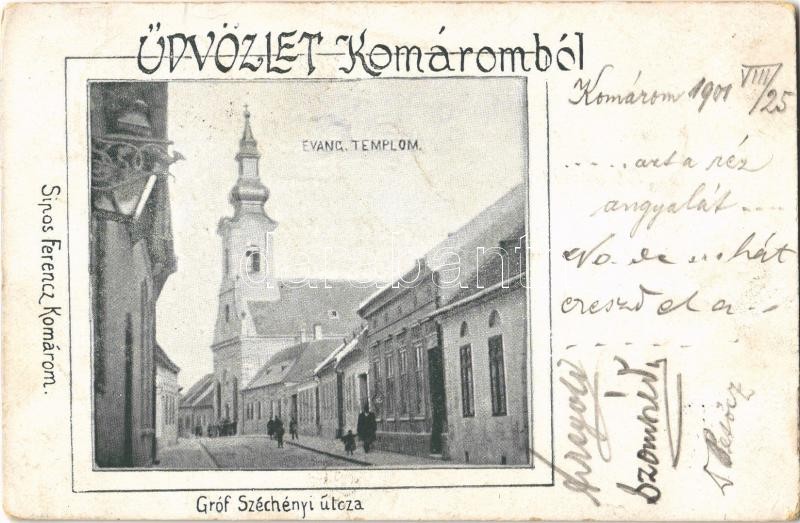 ÜDVÖZLET Komáromból
EVANG. TEMPLOM.
Sipos Ferencz Komárom.
Gróf Széchényi útcza
Komárom 1901 VIII/25
..... azt a réz
angyalát ....
No de ... hát
ereszd el a ...
darabanth